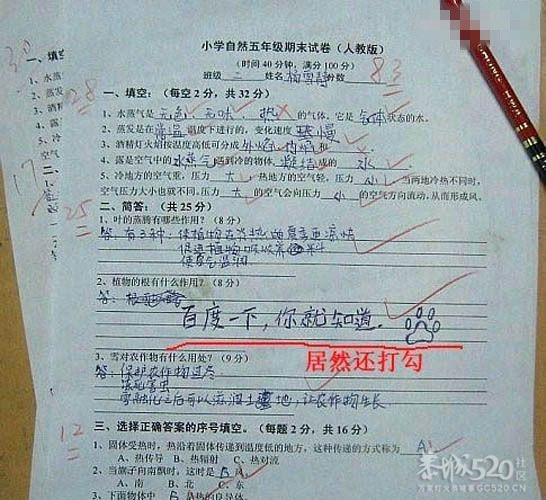 小学自然五年级期末试卷（人教版）
（时间40分钟，满分100分）
班级 二 姓名 分数 83
一、填空：（每空2分，共32分）
28
1、水蒸气是 无色、无味、热 的气体，它是 气体 状态的水。
2、蒸发是在 常温 温度下进行的，变化速度 慢
3、酒精灯火焰按温度高低可分成 外焰、内焰 和
4、露是空气中的 水蒸气 遇到冷的物体，凝结 成的 水 。
5、冷地方的空气重，压力 大 ，热地方的空气轻，压力 小 。当两地冷热不同时，
空气压力大小也就不同，压力 大 的空气会向压力 小 的空气方向流动，从而形成风。
二、简答：（共25分）
25
1、叶的蒸腾有哪些作用？（8分）
答：有三种：使植物在炎热的夏季更凉快
促进植物吸收养料
使空气湿润
2、植物的根有什么作用？（8分）
答：
百度一下，你就知道。
居然还打勾
3、雪对农作物有什么用处？（9分）
答：保护农作物过冬
冻死害虫
雪融化之后可以 土地，让农作物生长
三、选择正确答案的序号填空。（每题2分，共16分）
12
1、固体受热时，热沿着固体传递到温度低的地方，这种传递的方式称为 A
A、热传导 B、热辐射 C、热对流
2、当旗子向南飘时，这时是 B 风。
A、南 B、北 C、东
3、下面物体中 B 是热的良导体。
30
一、填
1、水蒸
2、蒸发
3、酒精
4、露
5、冷
空气
17
二、
空气
GC520.CN